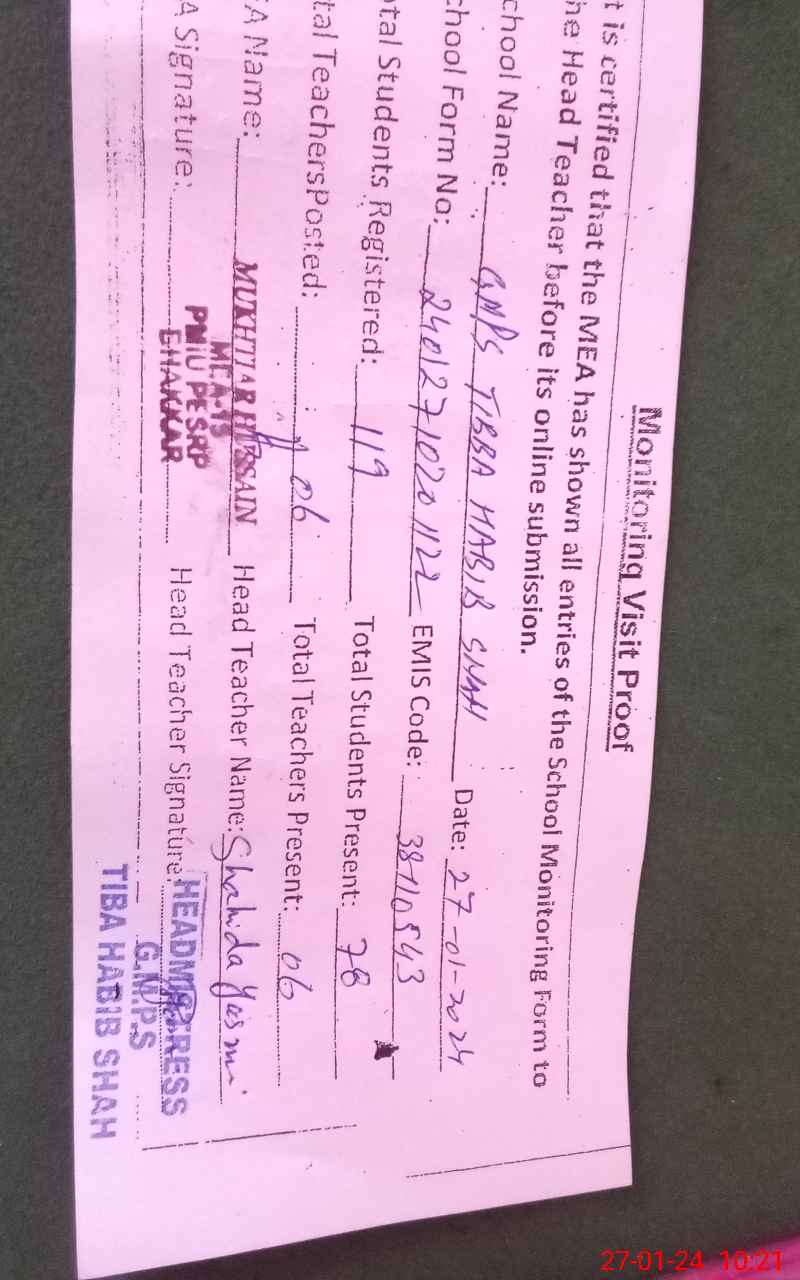 Monitoring Visit Proof
t is certified that the MEA has shown all entries of the School Monitoring Form to
he Head Teacher before its online submission.
chool Name: GMPS TIBBA HABIB SHAH Date: 27-01-2024
chool Form No: 24012710201122 EMIS Code: 38110543
otal Students Registered: 119 Total Students Present: 78
tal TeachersPosted: 06 Total Teachers Present: 06
A Name: MUKHTIAR HUSSAIN Head Teacher Name: Shahida Yasmi
MEA-15
A Signature: PMIU PESRP Head Teacher Signature: HEADMISTRESS
BHAKKAR
G.M.P.S
TIBA HABIB SHAH
27-01-24 10:21